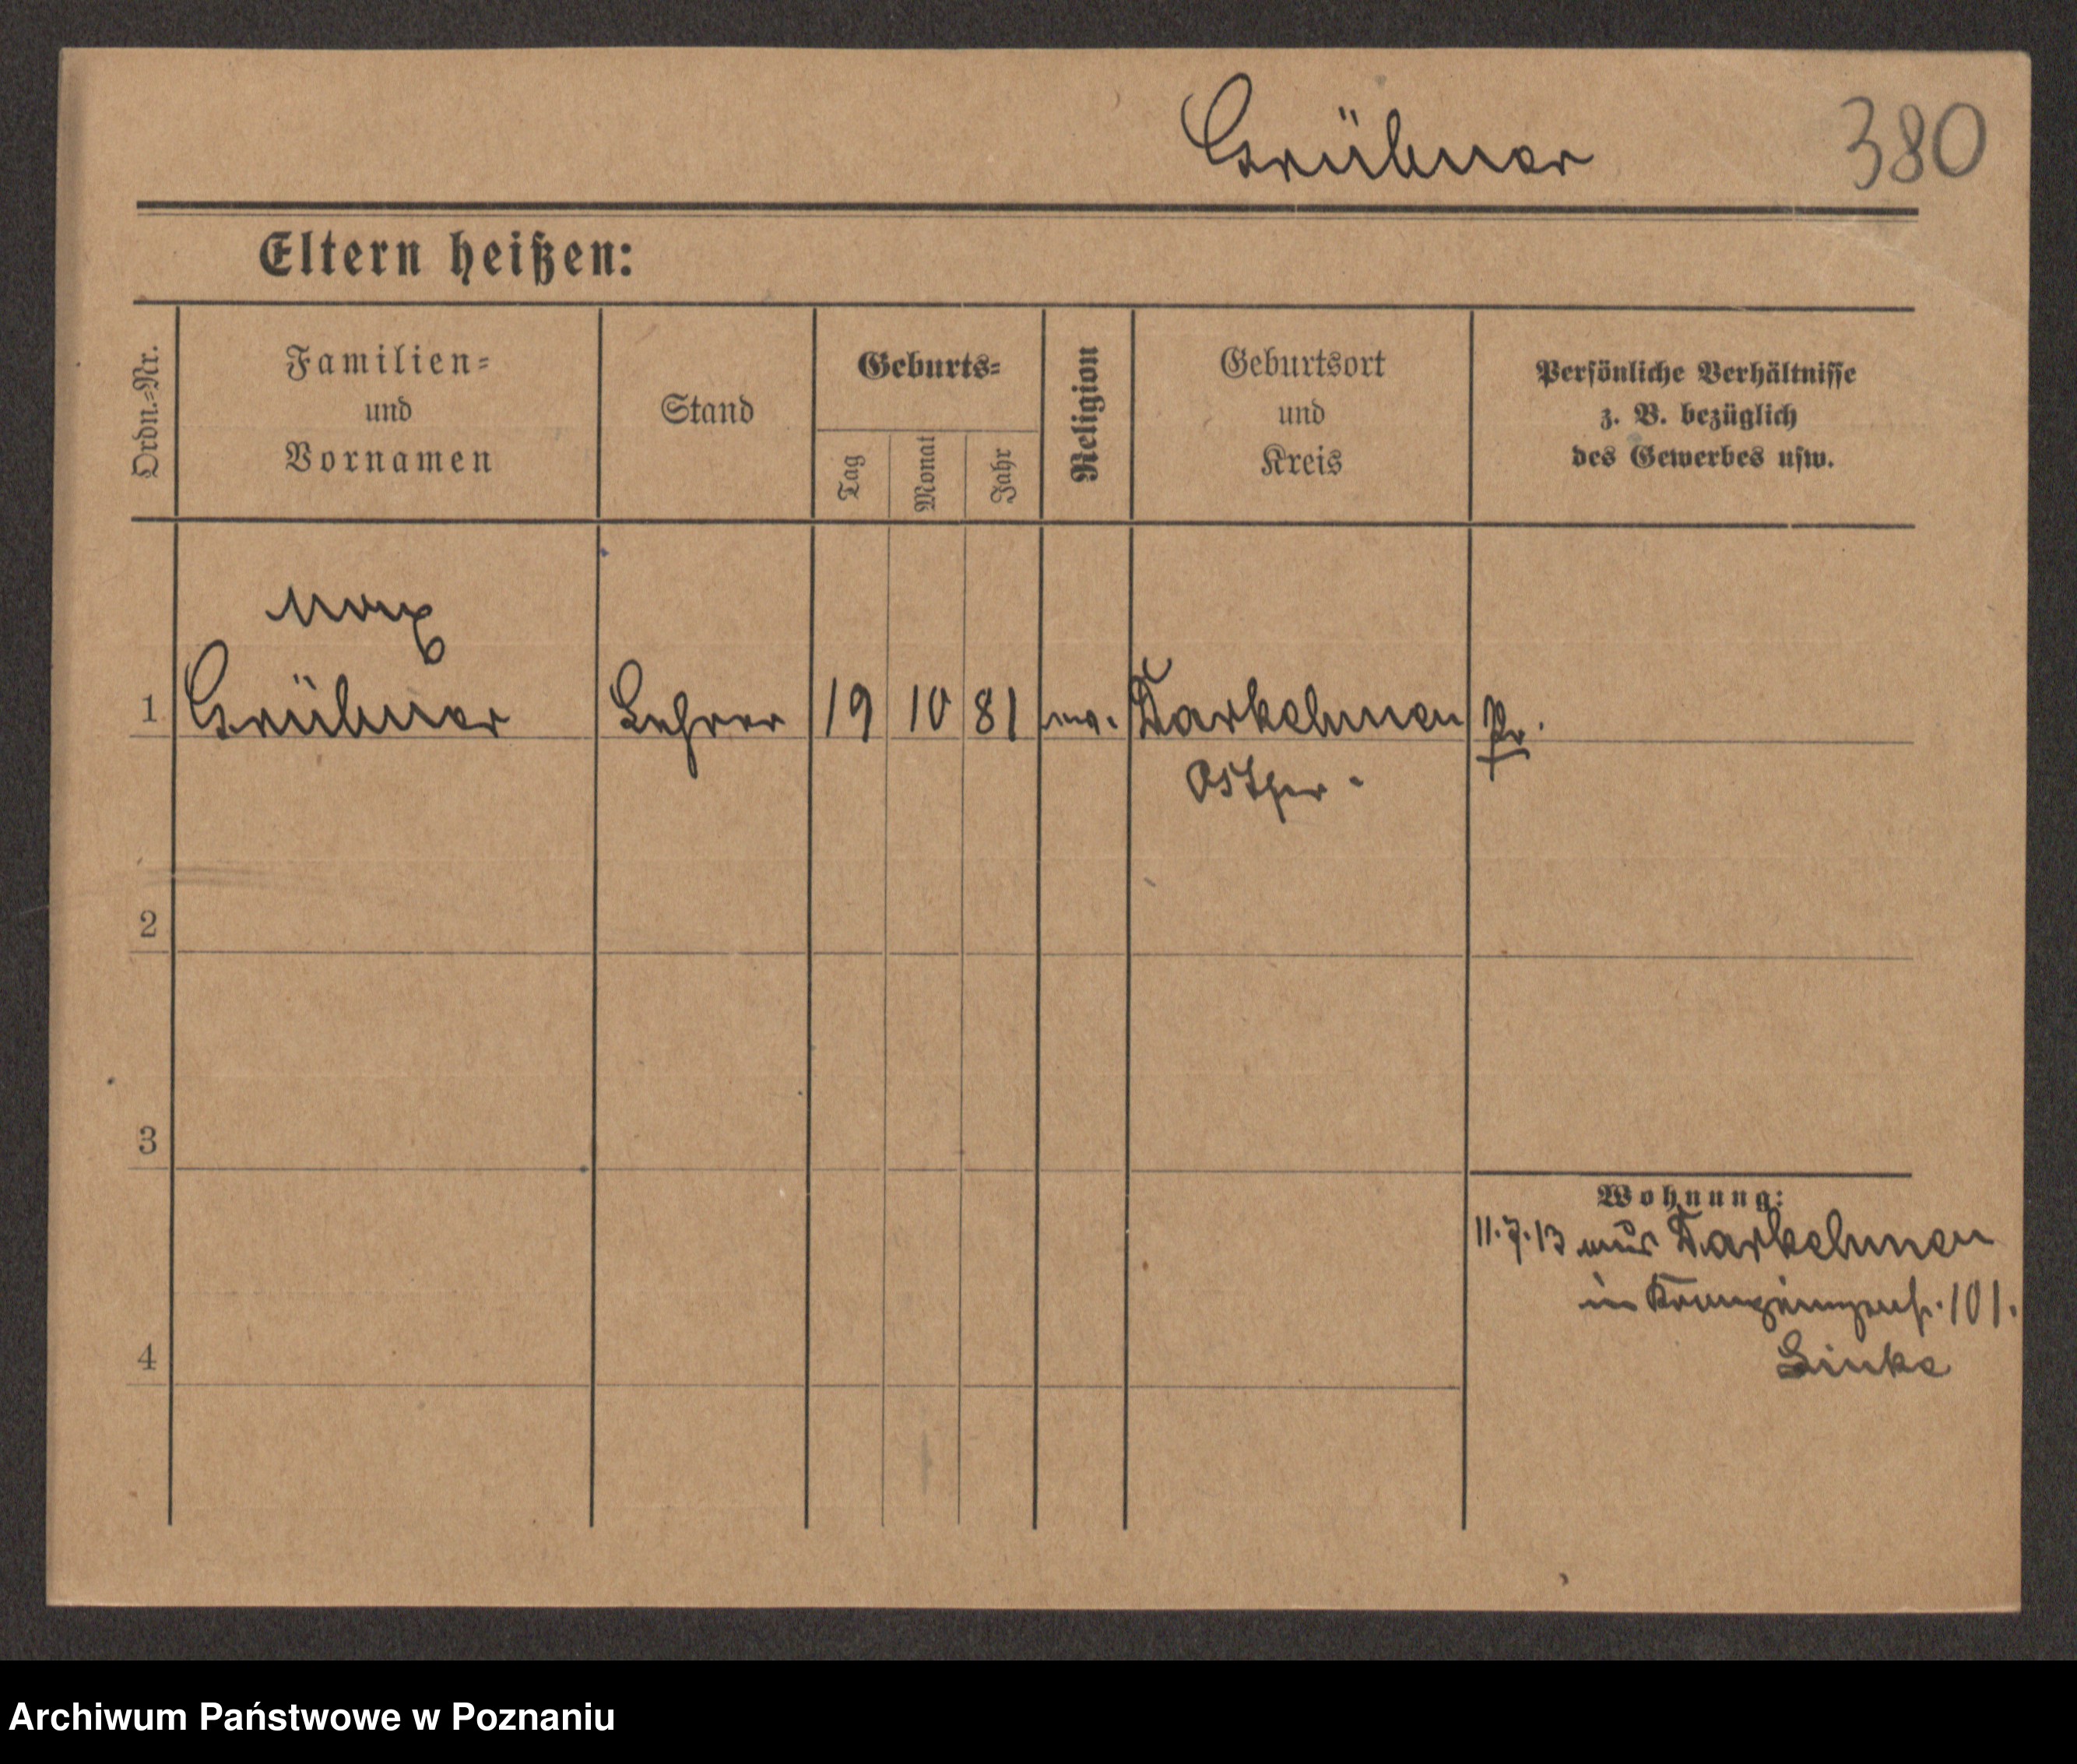 Grübner 380
Eltern heißen:
Ordn.-Nr.
Familien-
und
Vornamen
Stand
Geburts-
Tag
Monat
Jahr
Religion
Geburtsort
und
Kreis
Persönliche Verhältnisse
z. B. bezüglich
des Gewerbes usw.
Max
1 Grübner Lehrer 19 10 81 Darkehmen Pr.
Ostpr.
2
3
Wohnung:
11.7.13 aus Darkehmen
in 101.
4
Linke
Archiwum Państwowe w Poznaniu